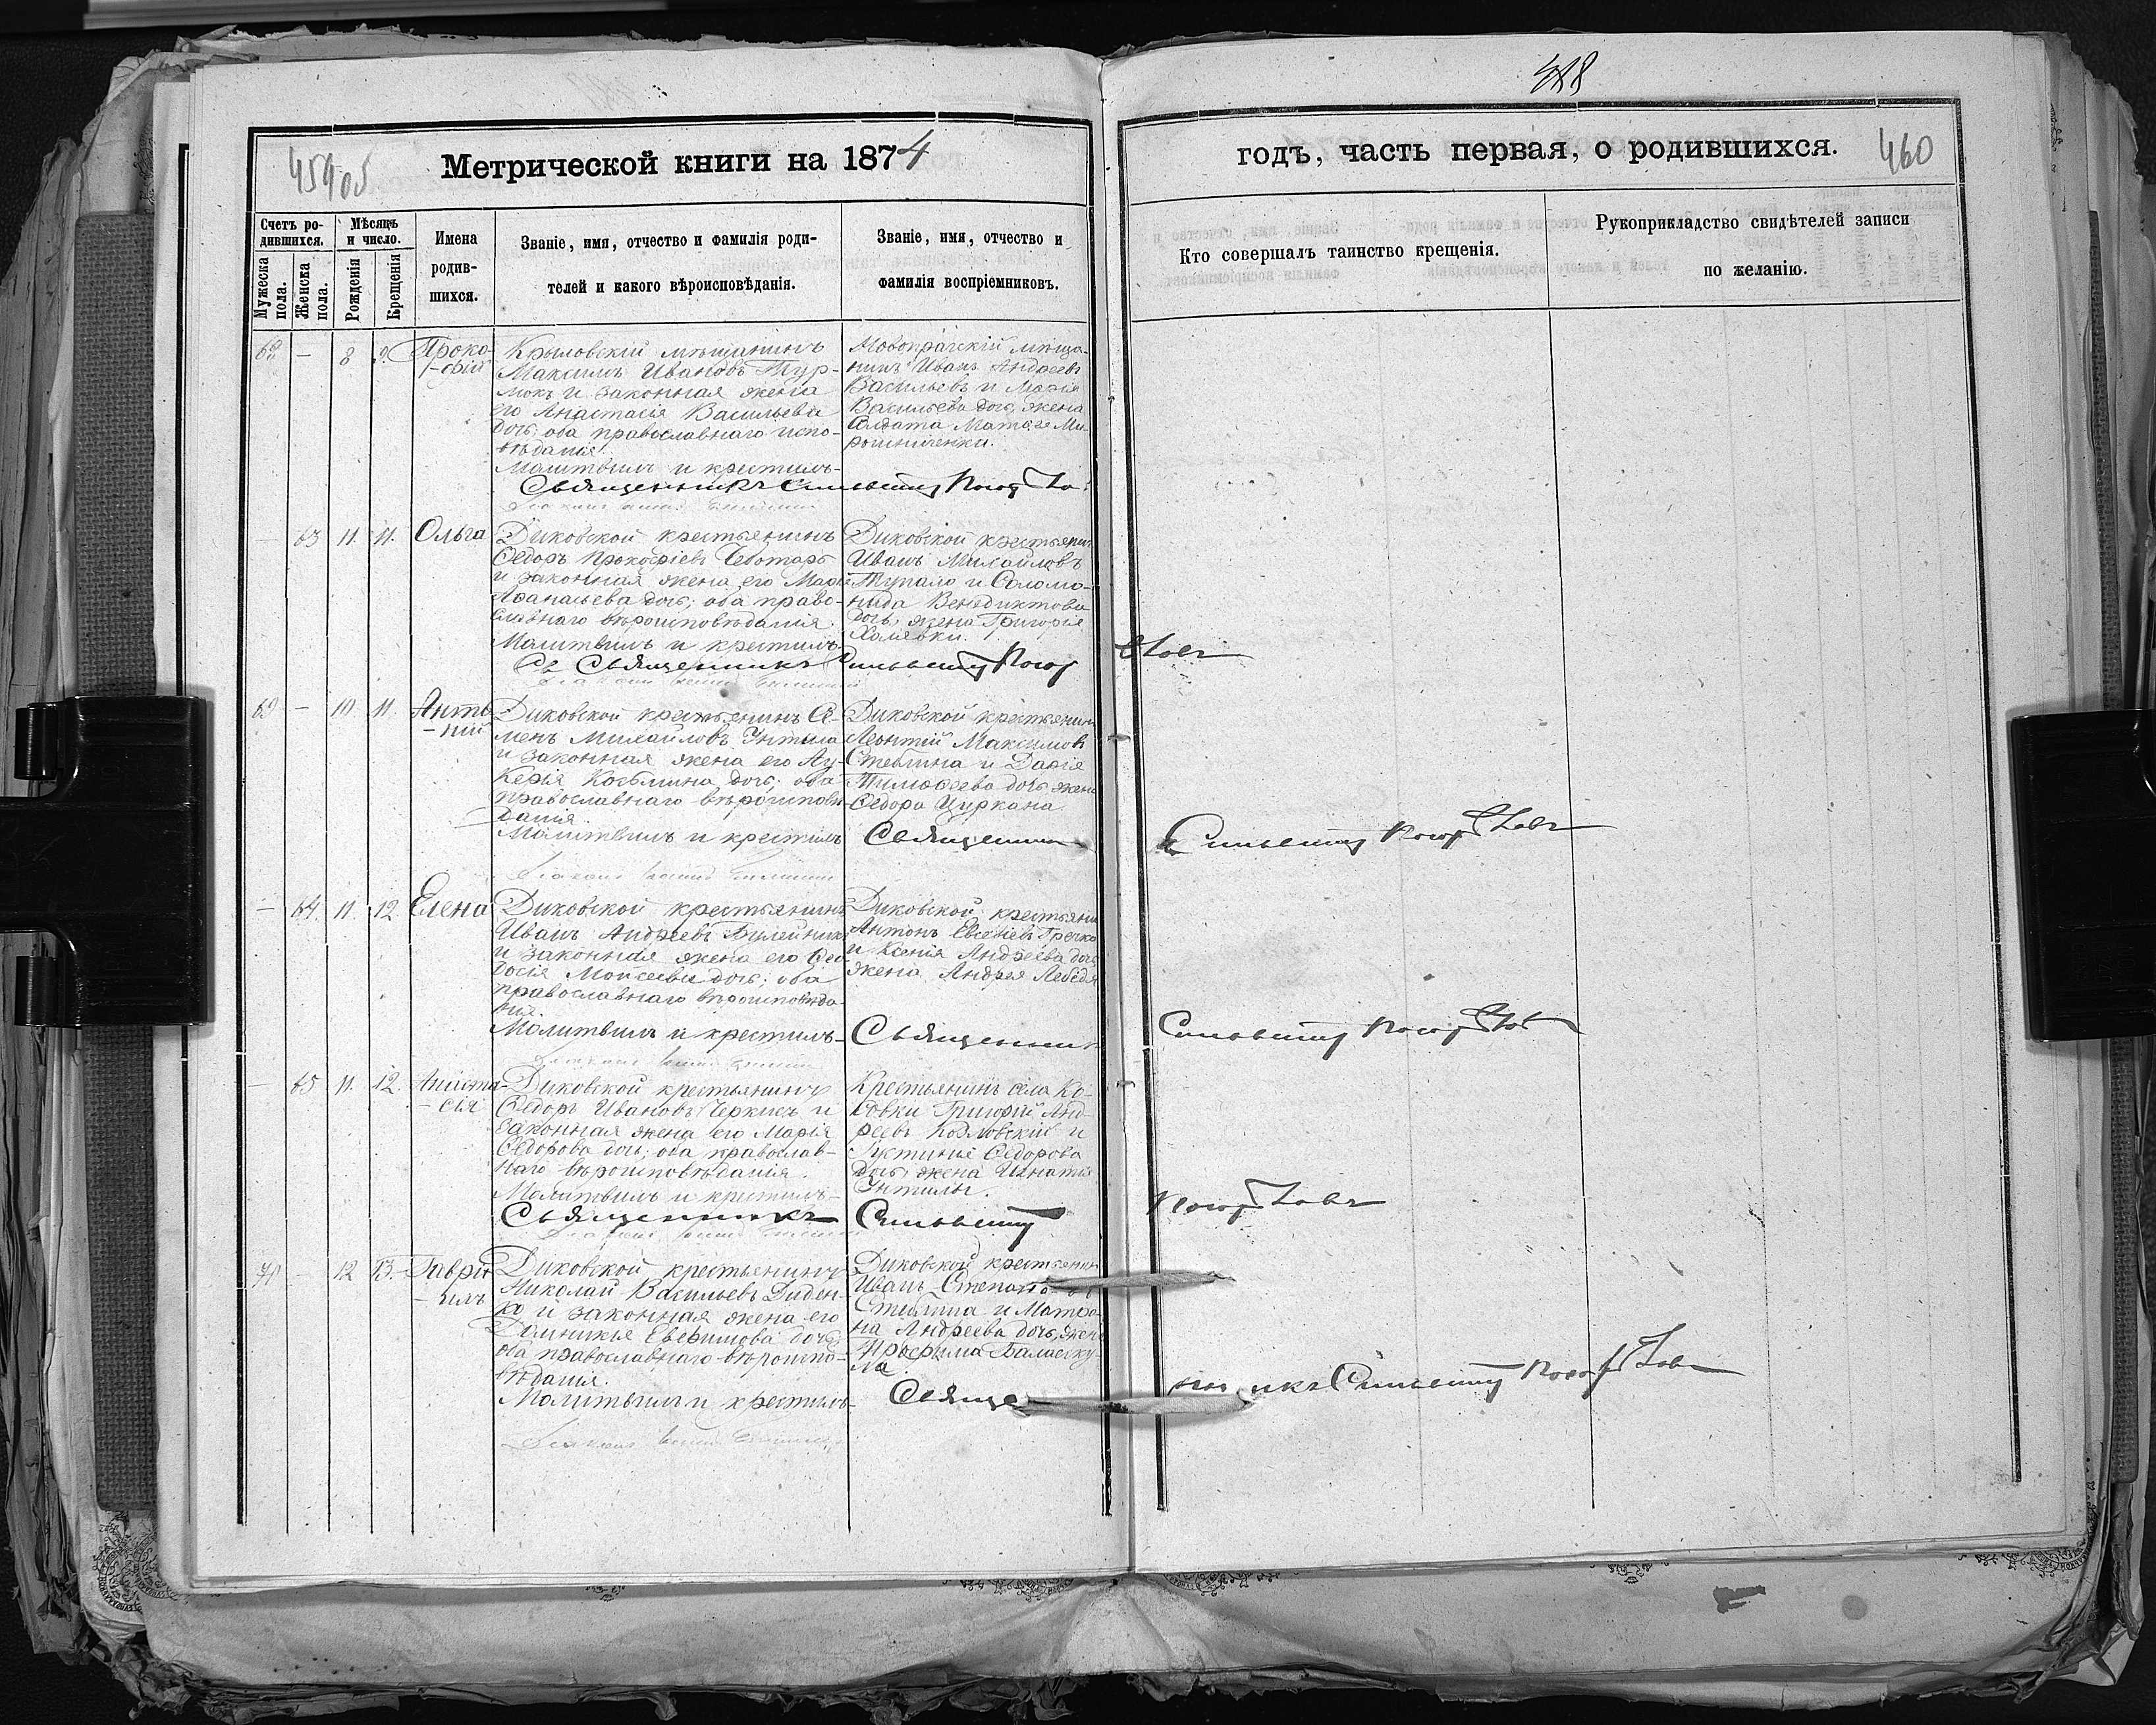 488
Метрической книги на 1874
годъ, часть первая, о родившихся.
460
Счетъ ро-
дившихся.
Мѣсяцъ
и число.
Мужеска
пола.
Женска
пола.
Рожденія
Крещенія
Имена
родив-
шихся.
Званіе, имя, отчество и фамилія роди-
телей и какого вѣроисповѣданія.
Званіе, имя, отчество и
фамилія воспріемниковъ.
Кто совершалъ таинство крещенія.
Рукоприкладство свидѣтелей записи
по желанію.
68 — 8 9. Проко-
-фій
Крыловскій мѣщанинъ
Максимъ Ивановъ Тур-
локъ и законная жена
его Анастасія Васильева
дочь, оба православнаго испо-
вѣданія.
Молитвилъ и крестилъ
Священникъ
Новопражскій мѣща-
нинъ Иванъ Андреевъ
Васильевъ и Марія
Васильева дочь, жена
Солдата Матвѣя Ми-
рошниченки.
— 63 11. 11. Ольга
Диковской крестьянинъ
Ѳедоръ Прокофіевъ Чеботарь
и законная жена его Марія
Аѳанасьева дочь; оба право-
славнаго вѣроисповѣданія.
Молитвилъ и крестилъ
Священникъ
Диковской крестьянинъ
Иванъ Михайловъ
Тупало и Соломо-
нида Венедиктова
дочь, жена Григорія
Халявки.
69 — 10 11. Анто-
-ній
Диковской крестьянинъ Се-
менъ Михайловъ Унтила
и законная жена его Лу-
керія Косьмина дочь; оба
православнаго вѣроисповѣ-
данія.
Молитвилъ и крестилъ
Диковской крестьянинъ
Леонтій Максимовъ
Стеблина и Дарія
Тимоѳеева дочь жена
Ѳедора Циркана.
Священникъ
— 64. 11. 12 Елена
Диковской крестьянинъ
Иванъ Андреевъ Булейникъ
и законная жена его Ѳео-
досія Моисеева дочь; оба
православнаго вѣроисповѣда-
нія.
Молитвилъ и крестилъ
Диковской крестьянинъ
Антонъ Евсевіевъ Гречко
и Ксенія Андреева дочь
жена Андрея Лебедя
Священникъ
— 65 11. 12. Анаста-
-сія
Диковской крестьянинъ
Ѳедоръ Ивановъ Черкисъ и
законная жена его Марія
Ѳедорова дочь; оба православ-
наго вѣроисповѣданія.
Молитвилъ и крестилъ
Священникъ
Крестьянинъ села Ко-
совки Григорій Анд-
реевъ Козловскій и
Іустинія Ѳедорова
дочь, жена Игнатія
Унтилы.
70 — 12 13. Гаврі-
-илъ
Диковской крестьянинъ
Николай Васильевъ Диден-
ко и законная жена его
Домникія Евфимова дочь,
оба православнаго вѣроиспо-
вѣданія.
Молитвилъ и крестилъ
Диковской крестьянинъ
Иванъ Степановъ
Стеблина и Матро-
на Андреева дочь, жена
Свяще
нникъ